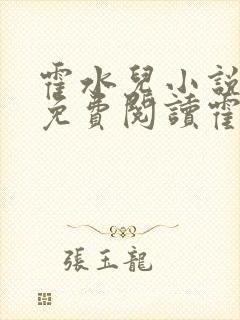 霍水兒小說
免費閱讀霍
張玉龍